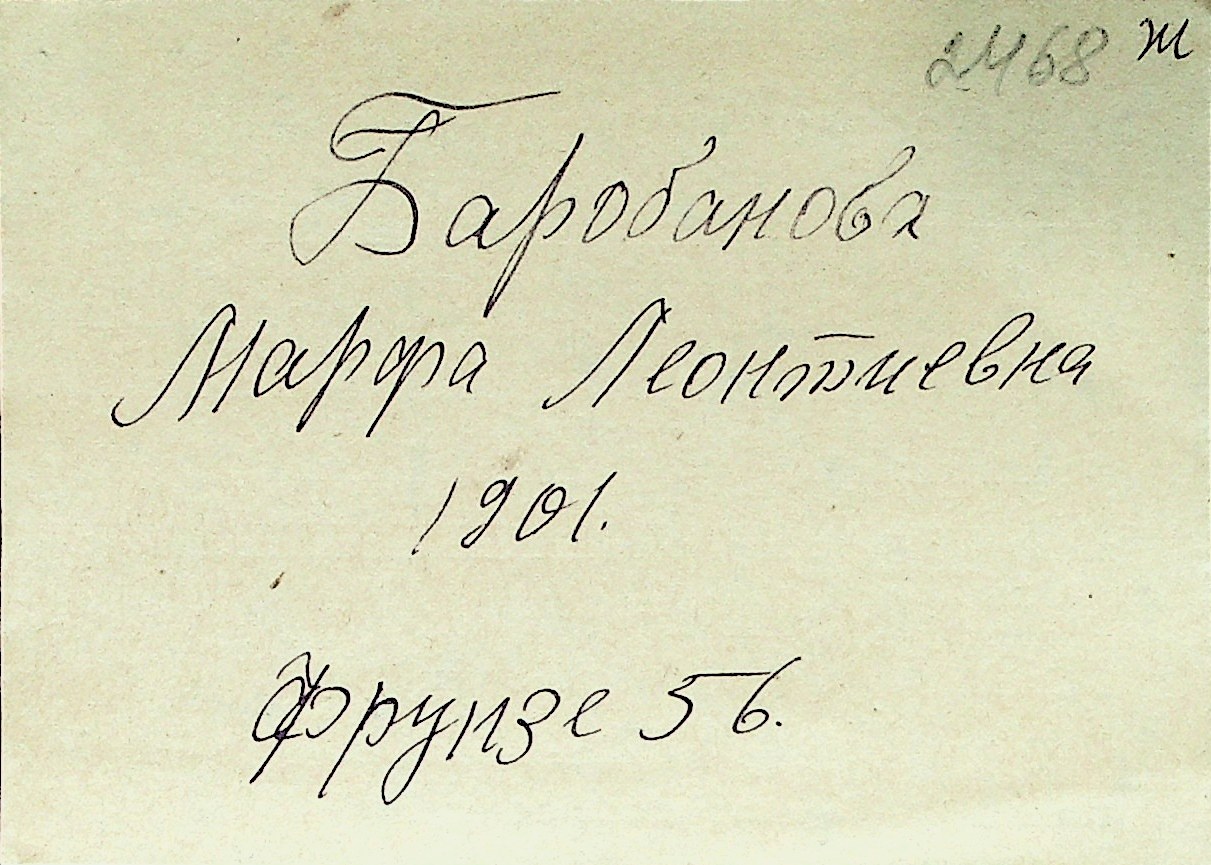 2468 ж
Баробанова
Марфа Леонтиевна
1901.
Фрунзе 56.